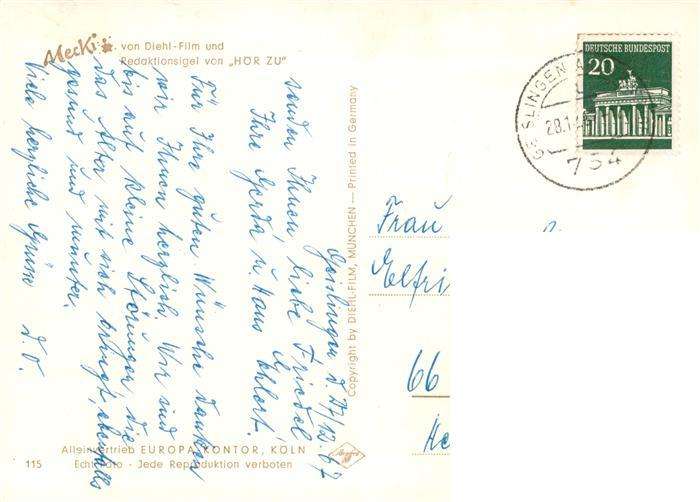 Mecki von Diehl-Film und
Redaktionsigel von „HÖR ZU"
Geislingen d. 27/12.67
Für Ihre guten Wünsche danken
wir Ihnen herzlich. Wir sind
bis auf kleine Störungen die
das Alter mit sich bringt, ebenfalls
gesund und munter.
Viele herzliche Grüsse u. s.
senden Ihnen liebe Friedel
Ihre Gerda u. Hans Ehlert.
Copyright by DIEHL-FILM, MÜNCHEN — Printed in Germany
Alleinvertrieb EUROPA-KONTOR, KÖLN
115 Echt Foto - Jede Reproduktion verboten
DEUTSCHE BUNDESPOST
20
GEISLINGEN
28.1
734
Frau
Elfri
66